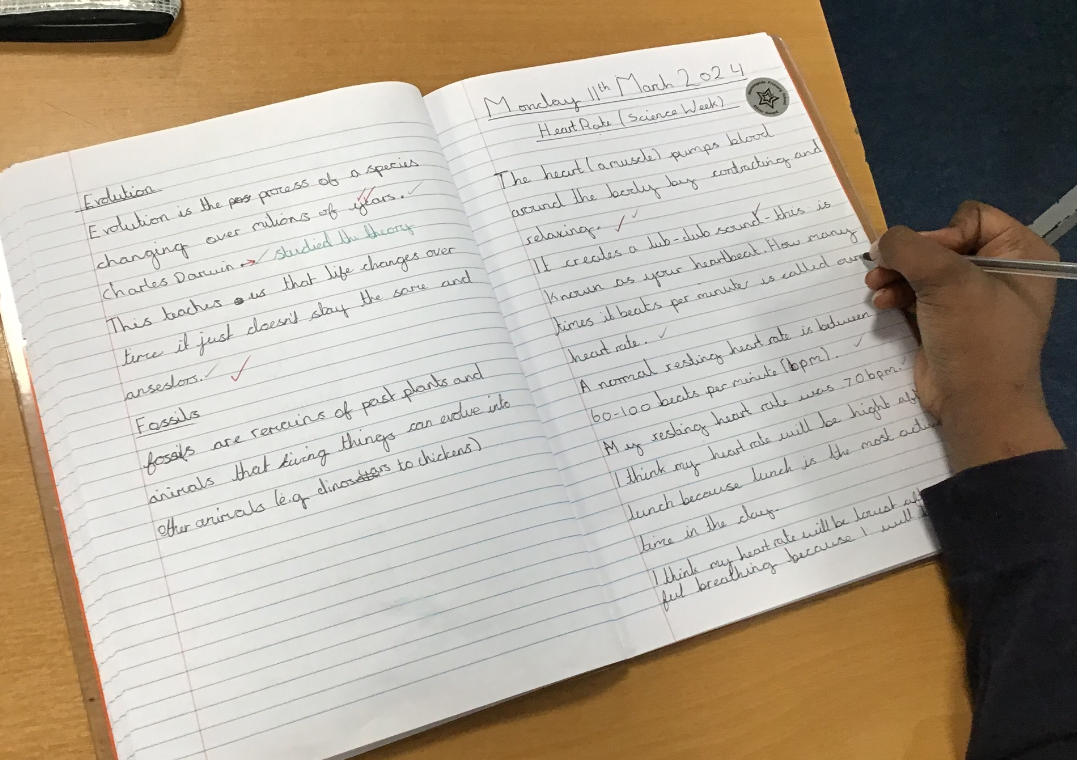 Evolution
Evolution is the process of a species
changing over milions of years.
Charles Darwin studied the theory
This teaches us that life changes over
time it just doesn't stay the same and
ansestors.
Fossils
fossils are remains of past plants and
animals that living things can evolve into
other animals (e.g dinosaurs to chickens)
Monday 11th March 2024
Heart Rate (Science Week)
The heart (a muscle) pumps blood
around the body by contracting and
relaxing.
It creates a lub-dub sound - this is
known as your heartbeat. How many
times it beats per minute is called our
heart rate.
A normal resting heart rate is between
60-100 beats per minute (bpm).
My resting heart rate was 70bpm.
I think my heart rate will be hight
lunch because lunch is the most
time in the day.
I think my heart rate will be lowest
ful breathing because I will